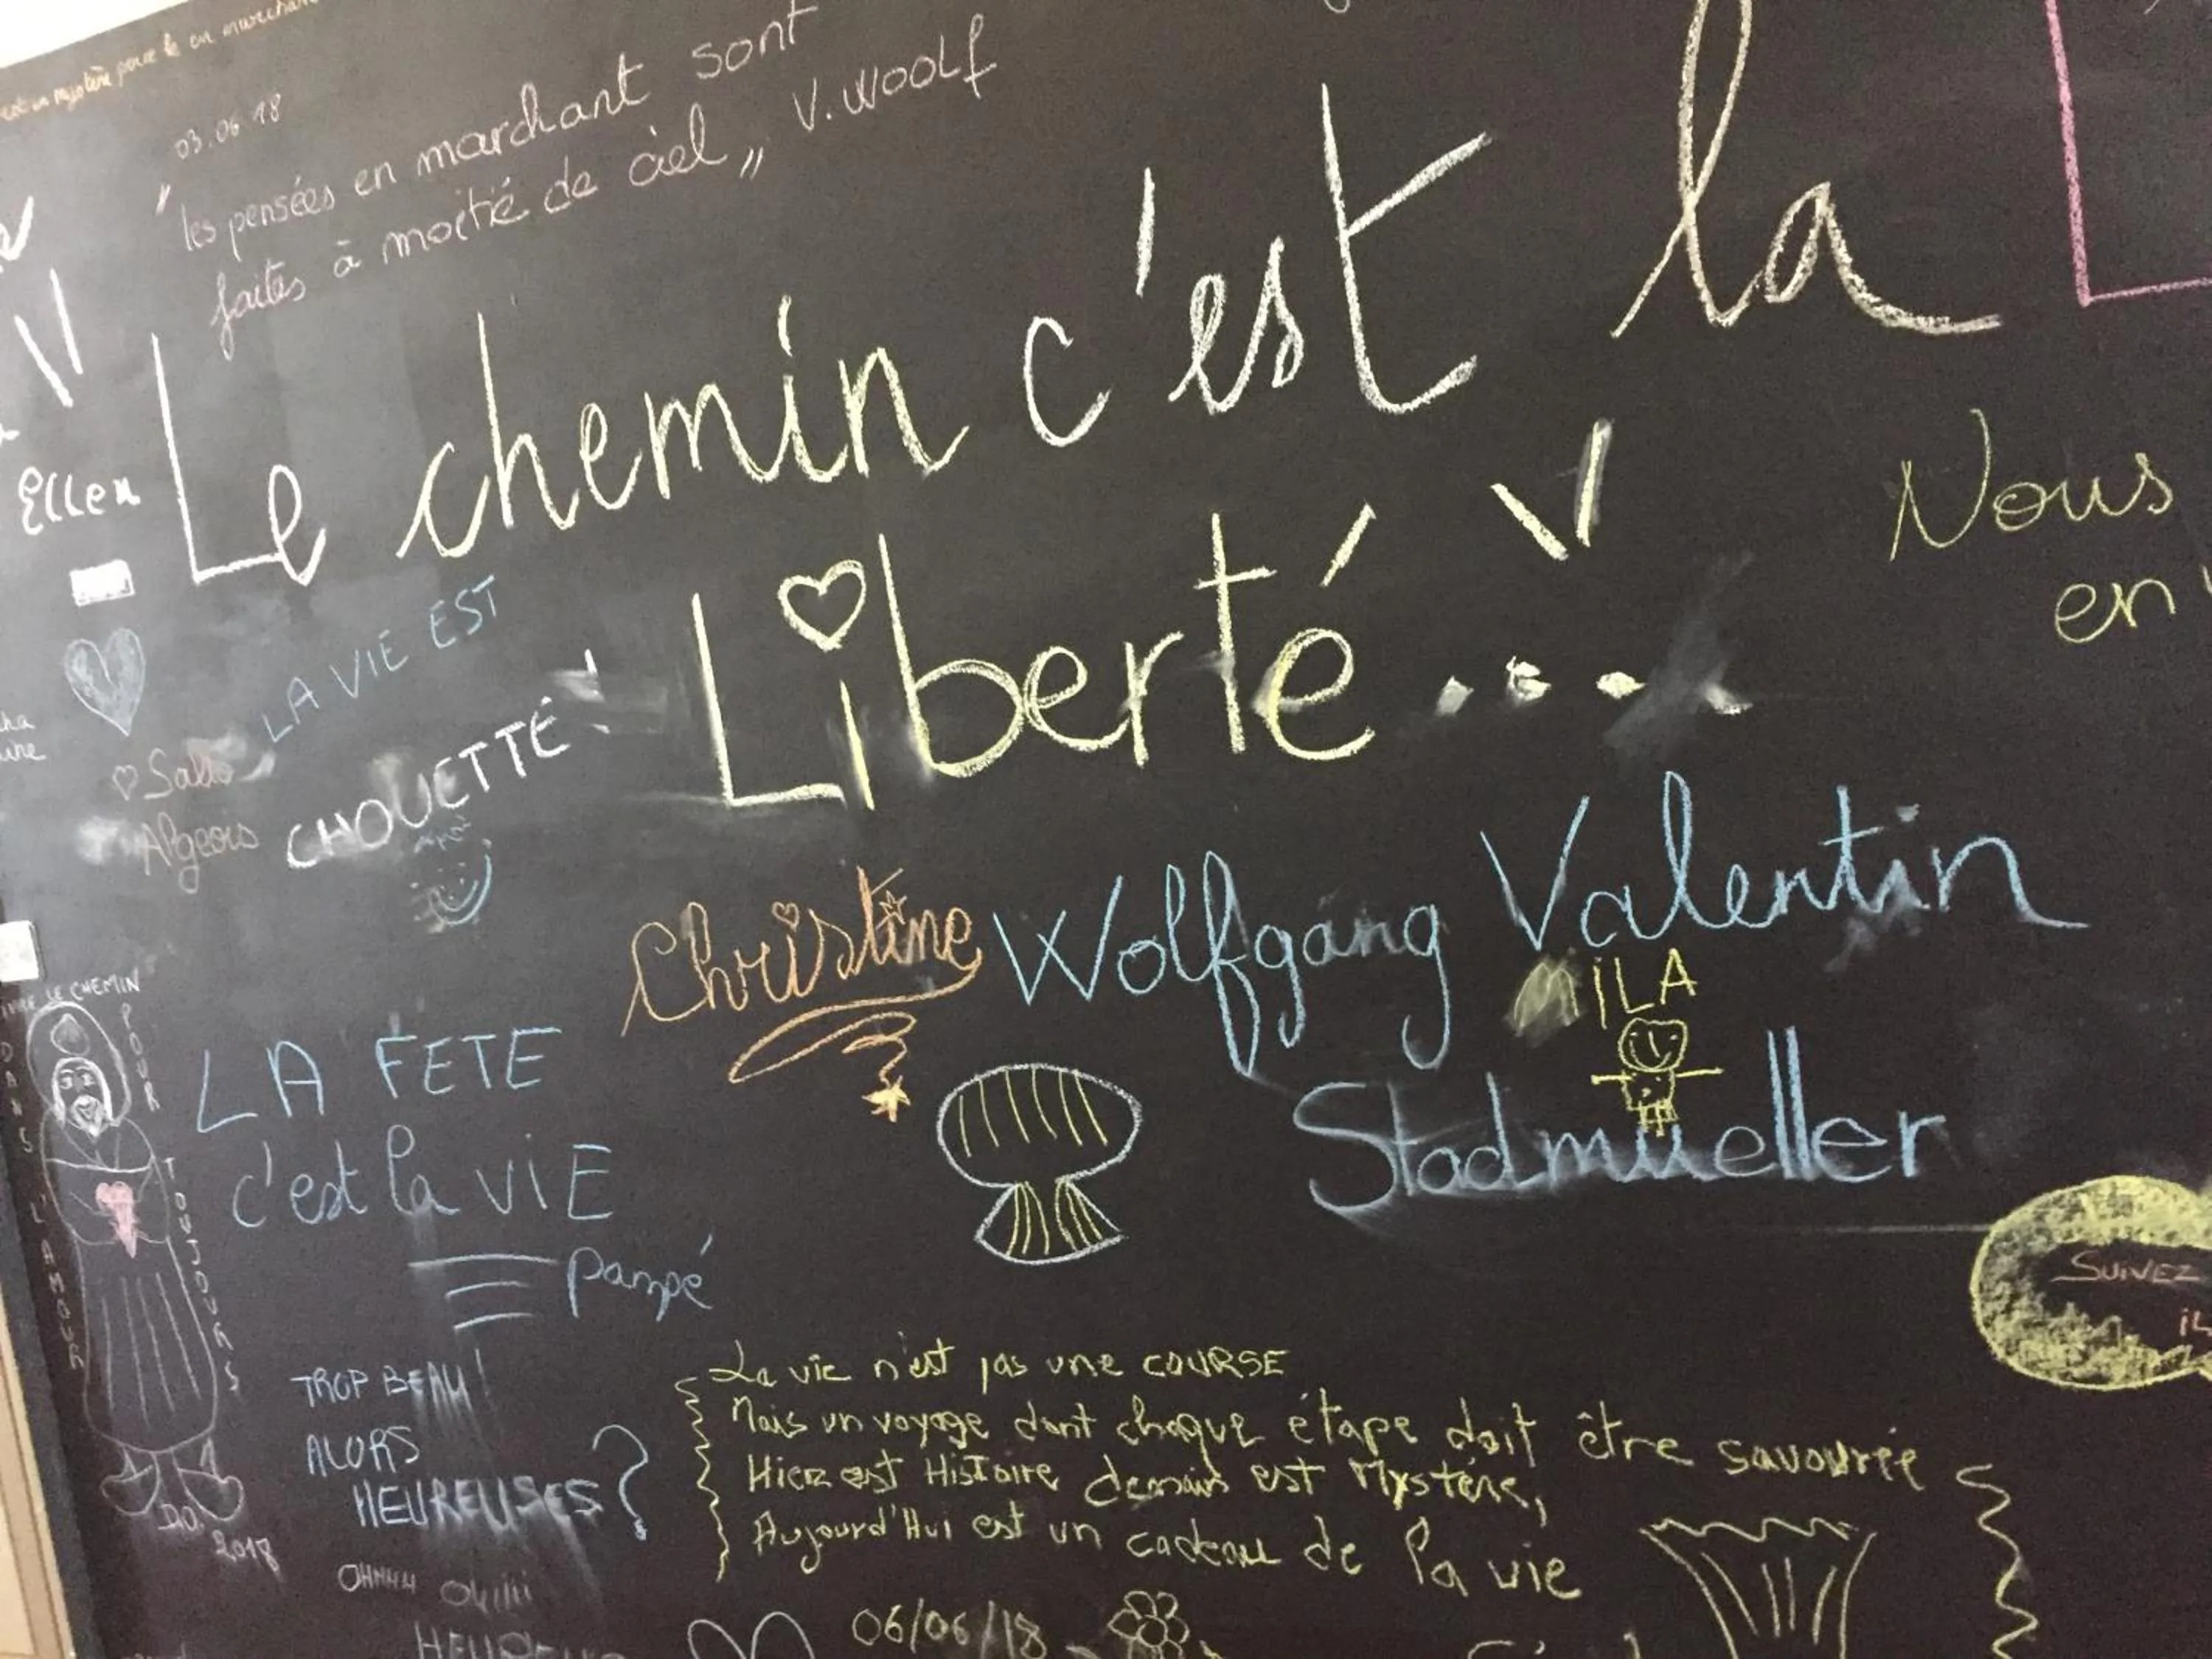 03.06.18
"les pensées en marchant sont
faites à moitié de ciel" V. WOOLF
Le chemin c'est la
Liberté...
Ellen
LA VIE EST
CHOUETTE!
Nous
en
Christine Wolfgang Valentin
MILA
Stadmueller
LE CHEMIN
POUR
TOUJOURS
DANS L'AMOUR
D.O.
2018
LA FETE
c'est la ViE
Pampé
SUIVEZ
TROP BEAU
ALORS
HEUREUSES?
OHHHH OUIIII
La vie n'est pas une COURSE
Mais un voyage dont chaque étape doit être savourée
Hier est HisToire demain est Mystère,
Aujourd'Hui est un cadeau de la vie
06/06/18